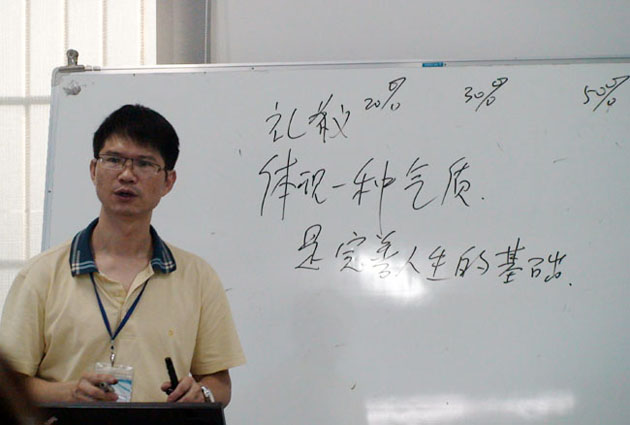 20% 30% 50%
礼教
体现一种气质.
是完善人生的基础.